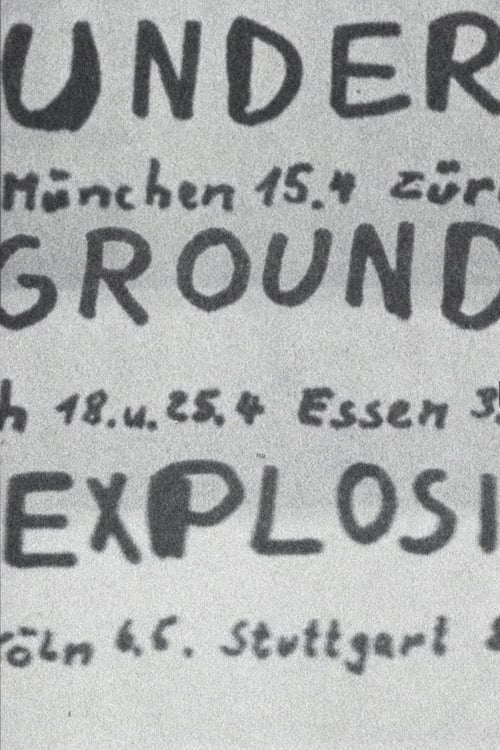 UNDER
München 15.4 Zür
GROUND
h 18.u.25.4 Essen 3
EXPLOSI
öln 6.5. Stuttgart